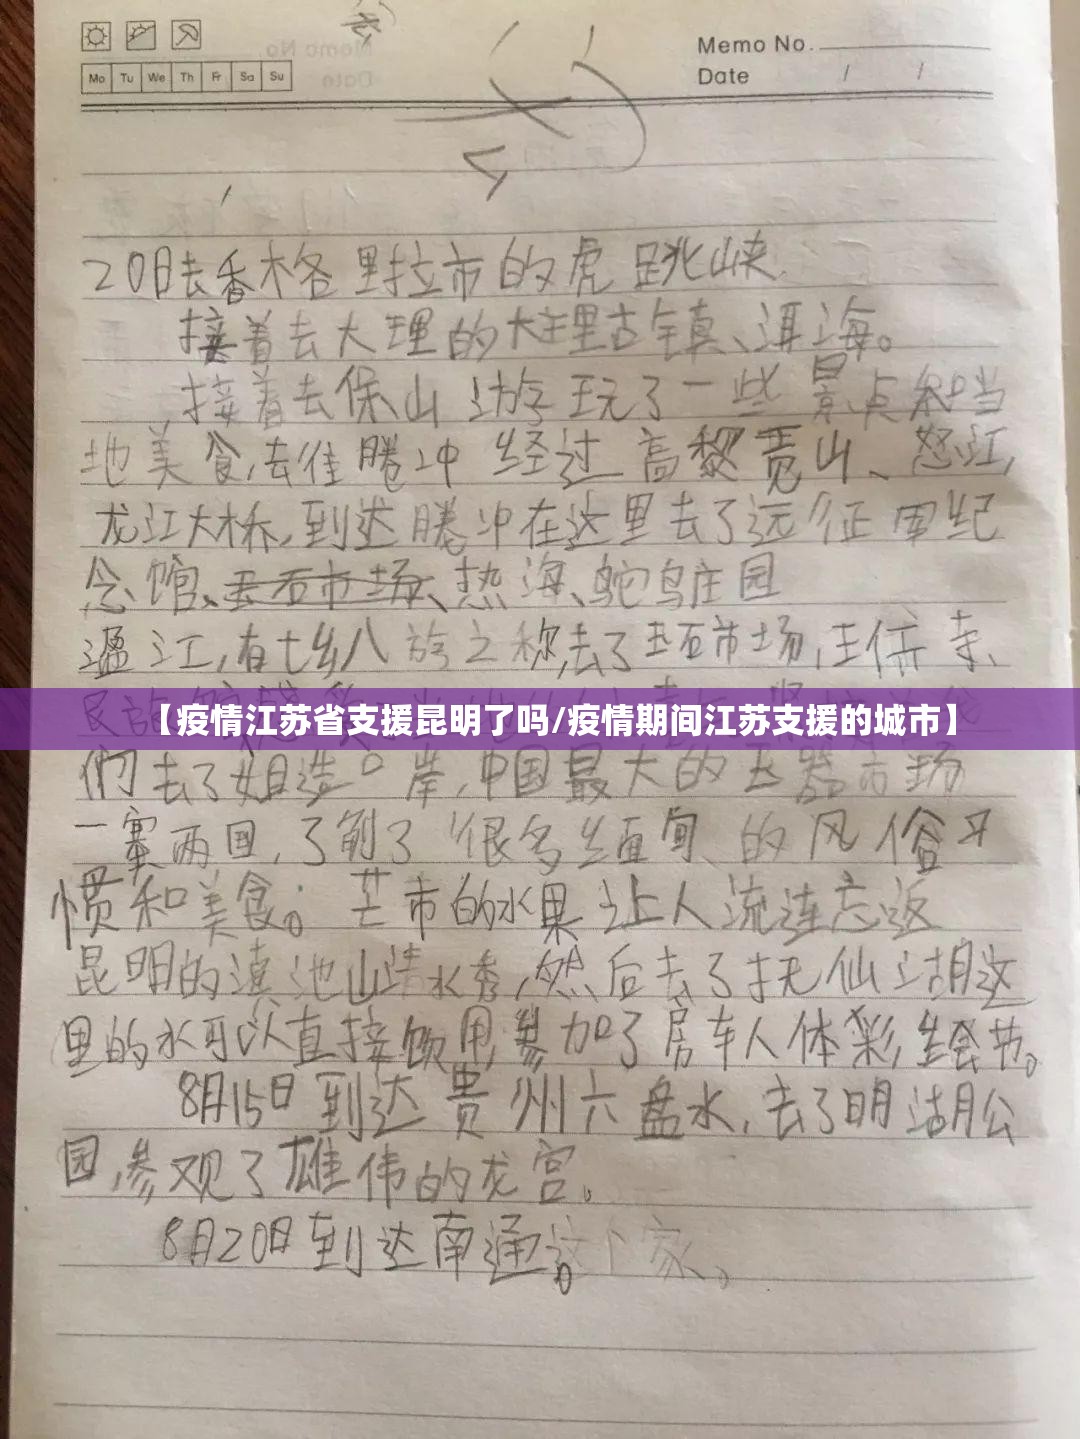 Memo No.
Mo Tu We Th Fr Sa Su
Date / /
20日去香格里拉市的虎跳峡
接着去大理的大理古镇、洱海。
接着去保山 游玩了一些景点和当
地美食,去往腾冲 经过高黎贡山、怒江,
龙江大桥,到达腾冲在这里去了远征军纪
念馆、玉石市场、热海、鸵鸟庄园
江,有七乡八 之称,去了玉石市场,
【疫情江苏省支援昆明了吗/疫情期间江苏支援的城市】
们去了姐造口岸,中国最大的玉器市场
一寨两国,了解了很多缅甸的风俗习
惯和美食。芒市的水果让人流连忘返
昆明的滇池山清水秀,然后去了抚仙湖这
里的水可以直接饮用,参加了房车人体彩绘节。
8月15日到达贵州六盘水,去了明湖公
园,参观了雄伟的龙宫。
8月20日到达南通。这个家。